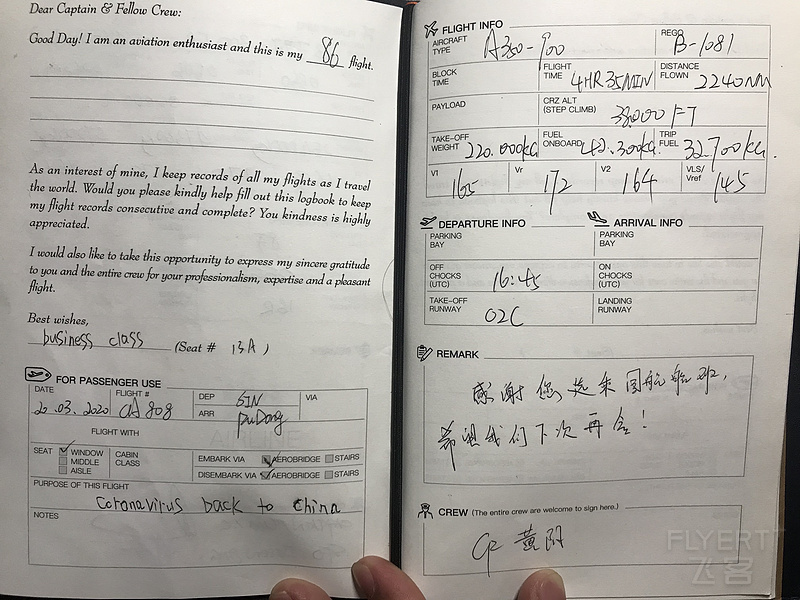 Dear Captain & Fellow Crew:
Good Day! I am an aviation enthusiast and this is my 86 flight.
As an interest of mine, I keep records of all my flights as I travel
the world. Would you please kindly help fill out this logbook to keep
my flight records consecutive and complete? You kindness is highly
appreciated.
I would also like to take this opportunity to express my sincere gratitude
to you and the entire crew for your professionalism, expertise and a pleasant
flight.
Best wishes,
business class (Seat # 13A)
FOR PASSENGER USE
DATE 20.03.2020
FLIGHT # CA 808
DEP SIN
VIA
ARR PuDong
FLIGHT WITH
SEAT WINDOW
MIDDLE
AISLE
CABIN
CLASS
EMBARK VIA AEROBRIDGE STAIRS
DISEMBARK VIA AEROBRIDGE STAIRS
PURPOSE OF THIS FLIGHT
Coronavirus back to China
NOTES
FLIGHT INFO
AIRCRAFT
TYPE A350-900
REG© B-1081
BLOCK
TIME
FLIGHT
TIME 4HR 35MIN
DISTANCE
FLOWN 2240NM
PAYLOAD
CRZ ALT
(STEP CLIMB) 38000 FT
TAKE-OFF
WEIGHT 220.000kg
FUEL
ONBOARD 42.300kg
TRIP
FUEL 32.700kg
V1 165
Vr 172
V2 164
VLS/
Vref 145
DEPARTURE INFO
PARKING
BAY
OFF
CHOCKS
(UTC) 16:45
TAKE-OFF
RUNWAY 02C
ARRIVAL INFO
PARKING
BAY
ON
CHOCKS
(UTC)
LANDING
RUNWAY
REMARK
感谢您选乘国航航班，
希望我们下次再会！
CREW (The entire crew are welcome to sign here.)
黄阳
FLYERT
飞客